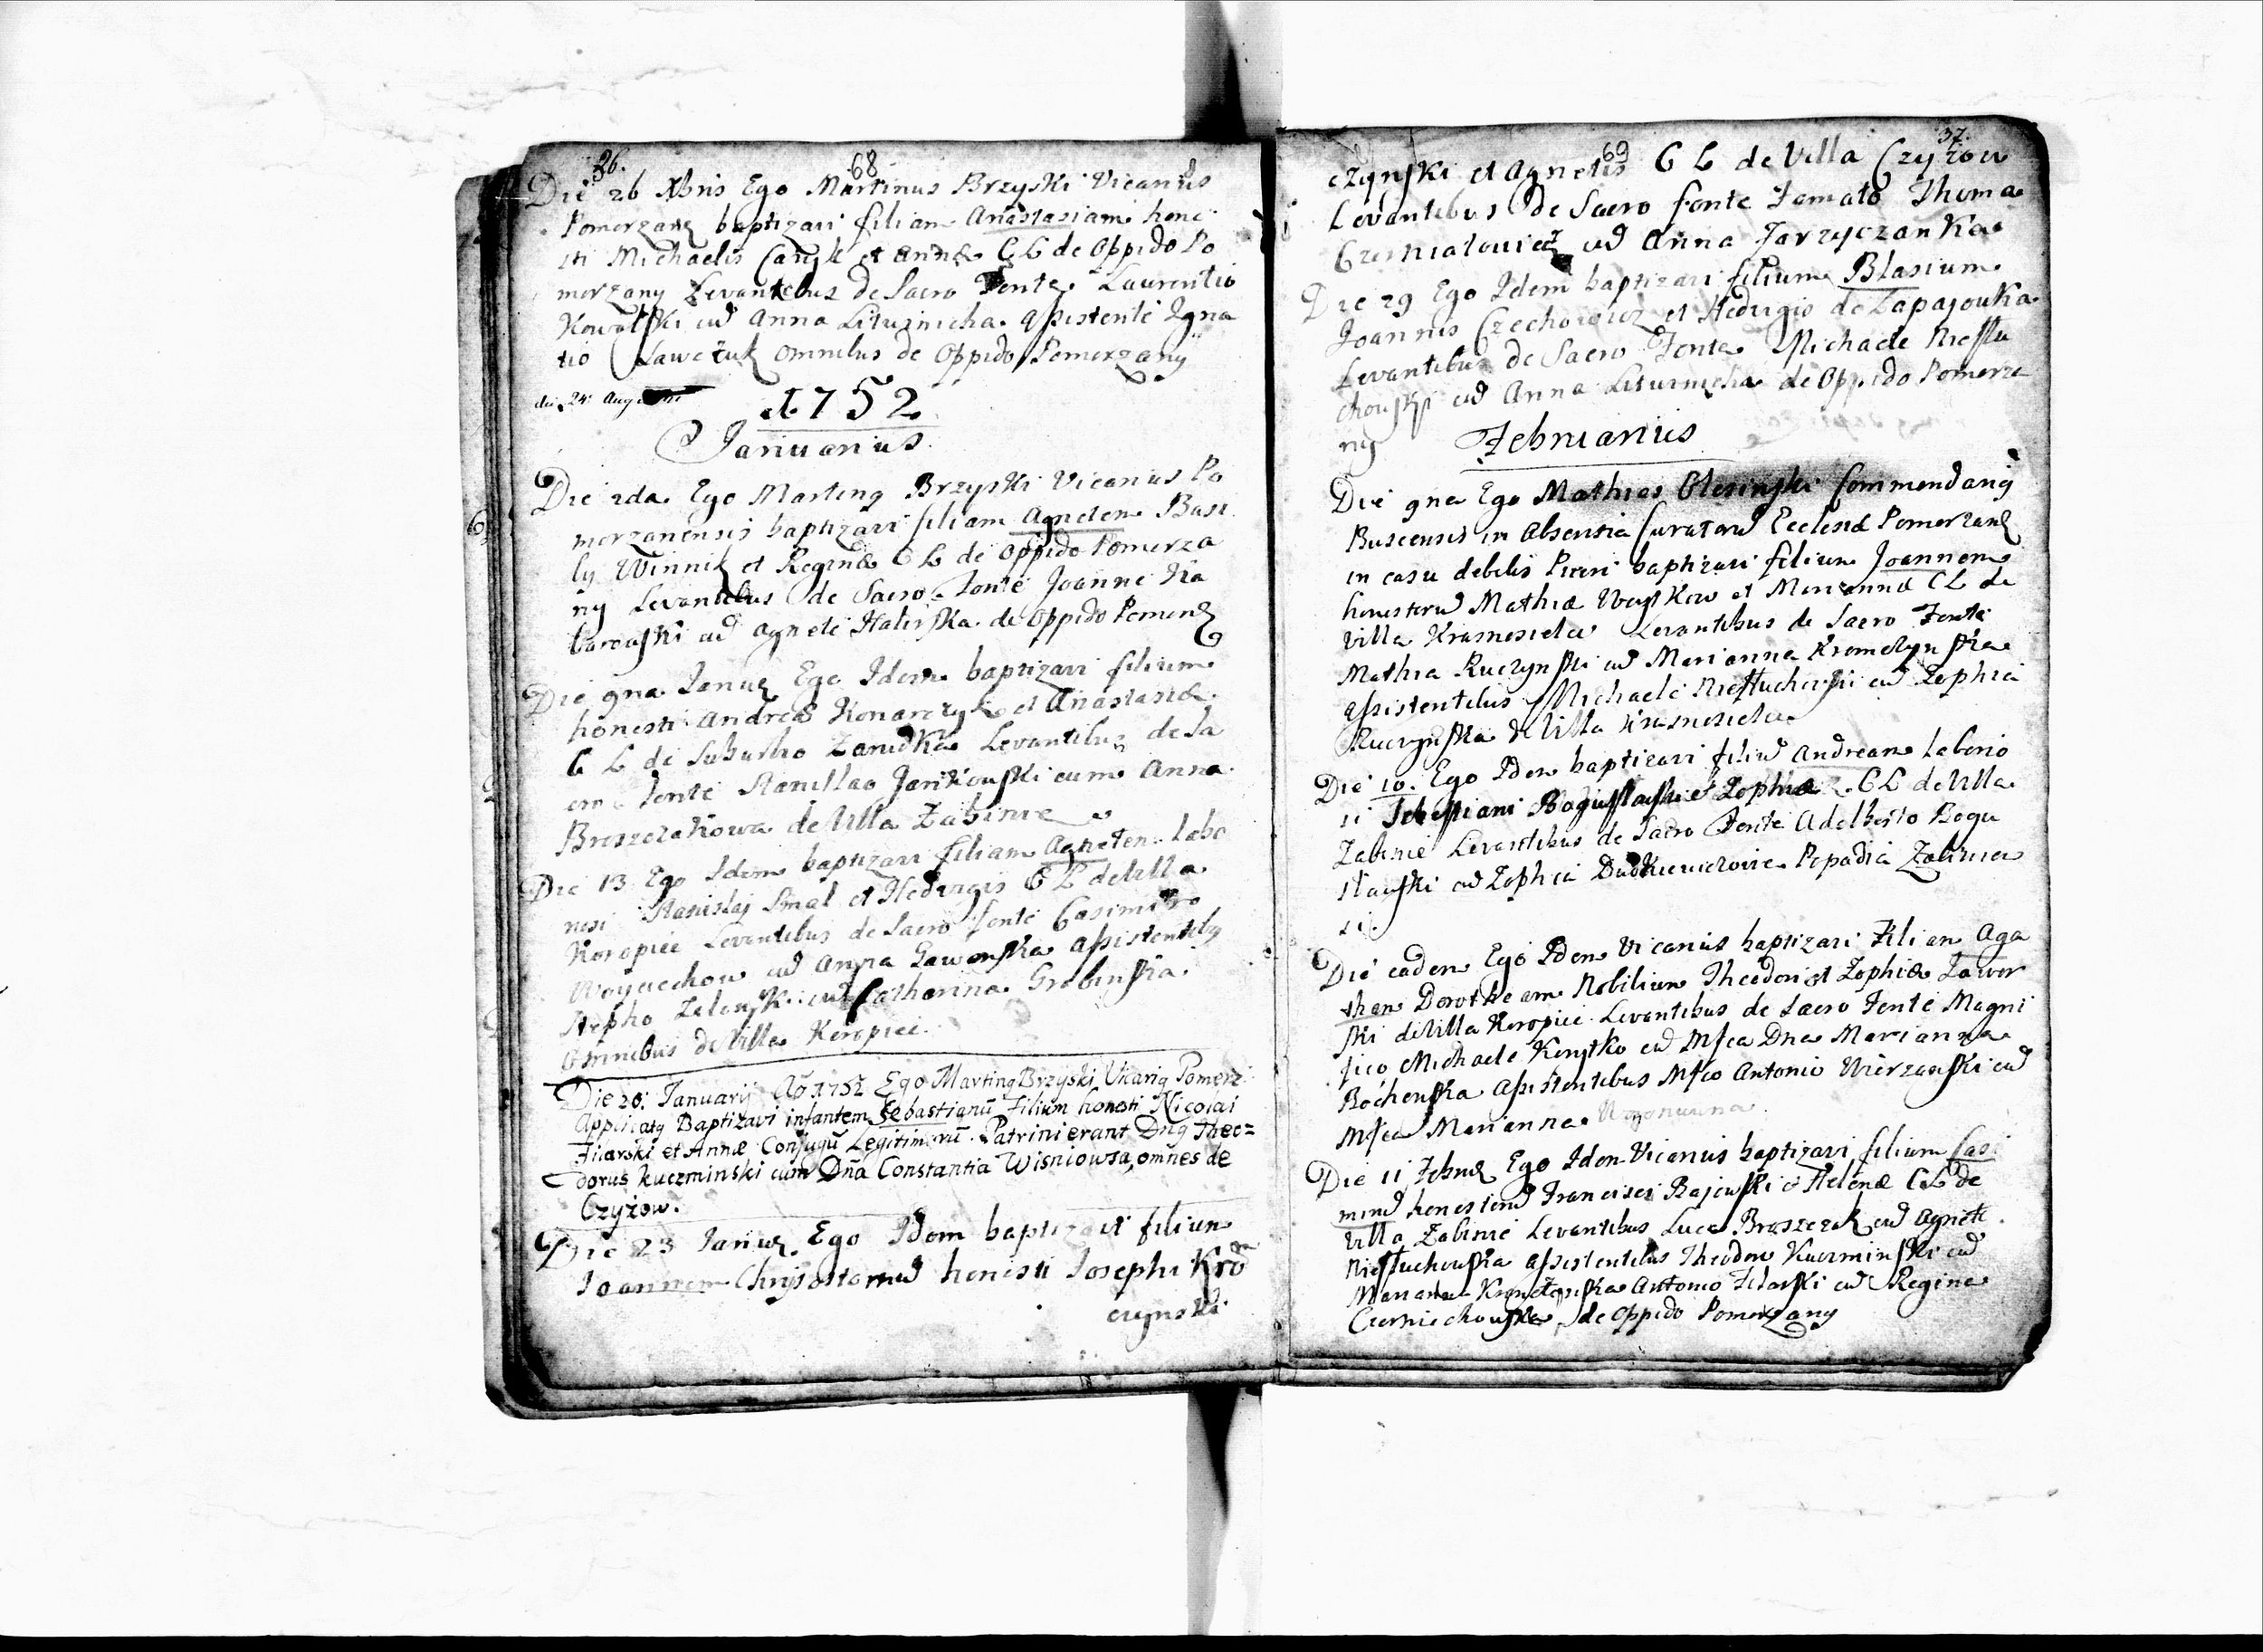 36. 68
Die 26 Xbris Ego Martinus Brzyski Vicarius
Pomorzanẽ baptizavi filiam Anastasiam hone
sti Michaelis et Annæ C L de Oppido Po
morzany Levantibus de Sacro Fonte Laurentio
Kowalski cũ Anna Liturnicha assistente Igna
tio Sawczuk omnibus de Oppido Pomorzany
die 24
1752
Januarius
Die 2da Ego Martinq Brzyski Vicarius Po
morzanensis baptizavi filiam Agneten Basi
ly Winnik et Reginæ C L de Oppido Pomorza
ny Levantibus de Sacro Fonte Joanne Ka
cũ Agnete Halinska de Oppido Pomorz
Die 9na Januar Ego Idem baptizavi filium
honesti Andreæ Konarczyk et Anastasiæ
C L de Suburbio Zarudka Levantibus de Sa
cro Fonte Stanislao Jankowski cum Anna
Broszczakowa de Villa Zabinie
Die 13 Ego Idem baptizavi filiam Agneten labo
riosi Stanislaj Smal et Hedvigis C L de Villa
Koropiec Levantibus de Sacro fonte Casimiro
Woyciechow cũ Anna Gawonska assistentibq
Stepho Zelensk cũ Catharina Grabinska
omnibus de Villa Koropiec.
Die 20: Januarij Aõ 1752 Ego Martinq Brzyski Vicariq Pomerz:
Baptizavi infantem Sebastianũ Filium honesti Nicolai
Filarski et Annæ Conjugũ Legitimorũ. Patrini erant Dnq Theo=
dorus Kuczminski cum Dña Constantia Wisniowsa, omnes de
Czyżow.
Die 23 Januar Ego Idem baptizavi filium
Joannem Chrysostomũ honesti Josephi Krõ
czynski
69 37.
czynski et Agnetis C L de Villa Czyżow
Levantibus de Sacro fonte Famato Thoma
Czerniatowicz cũ Anna Jarzyczanka
Die 29 Ego Idem baptizavi filium Blasium
Joannis Czechowicz et Hedvigis de Zapajowka
Levantibus de Sacro Fonte Michaele Niestu
chowski cũ Anna Liturnicha de Oppido Pomorza
ny
Februarius
Die 9na Ego Mathias Olesinski Commendariq
Buscensis in Absentia Curatorũ Ecclesiæ Pomorzanẽ
in casu debilis Pueri baptizavi filium Joannem
honestorũ Mathiæ Woytkow et Mariannæ C L de
Villa Krasnosielce Levantibus de Sacro Fonte
Mathia Ruczynski cũ Marianna Kromczynska
assistentibus Michaele Niestuchowski cũ Zophia
Ruczynska de Villa Krasnosielce
Die 10. Ego Idem baptizavi filiũ Andream laborio
si Sebastiani Bogustawski et Zophiæ C L de Villa
Zabinie Levantibus de Sacro Fonte Adelberto Bogu
stawski cũ Zophia Dudkiewiczowie Popadia Zabinien
si.
Die eadem Ego Idem Vicarius baptizavi Filiam Aga
tham Dorotheam Nobilium Theodori et Zophiæ Jawor
ski de Villa Koropiec Levantibus de Sacro Fonte Magni
fico Michaele Korytko cũ Mfca Dna Marianna
Bochenska Assistentibus Mfco Antonio Wierzawski cũ
Mfca Marianna
Die 11 Febru Ego Idem Vicarius baptizavi filium Casi
mirũ honestorũ Francisci Bajewski et Helenæ C L de
Villa Zabinie Levantibus Luca Broszczak cũ Agnete
Niestuchowska assistentibus Theodoro Kuczminski cũ
Marianna Antonio Filarski cũ Regina
Czerniechowska de Oppido Pomorzany